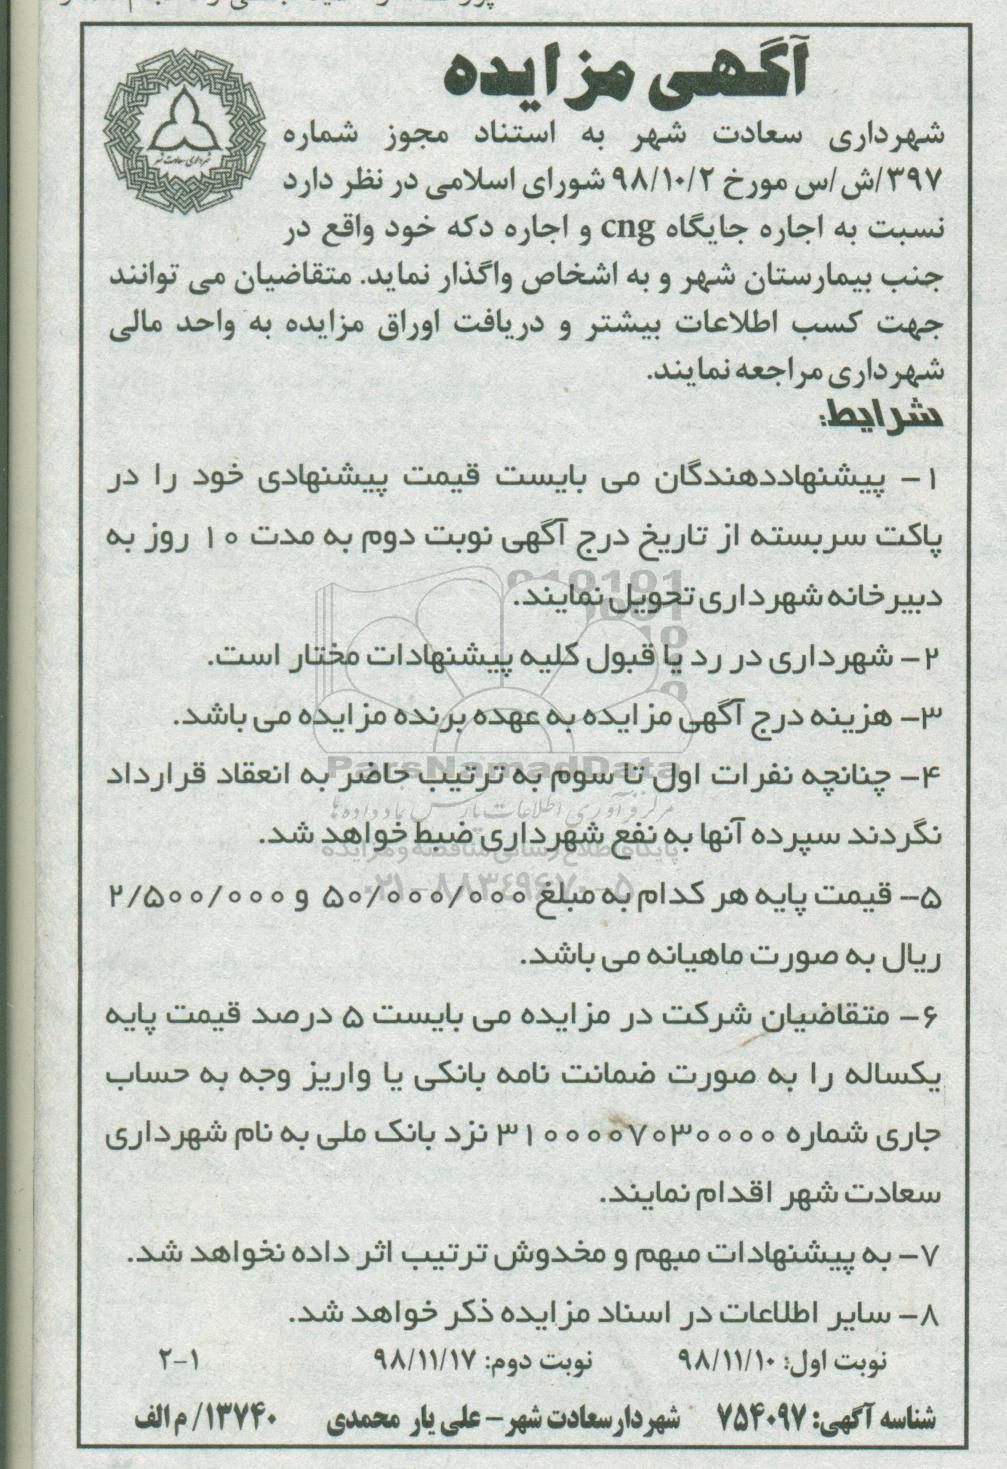 آگهی مزایده
شهرداری سعادت شهر
شهرداری سعادت شهر به استناد مجوز شماره
۳۹۷/ش/س مورخ ۹۸/۱۰/۲ شورای اسلامی در نظر دارد
نسبت به اجاره جایگاه cng و اجاره دکه خود واقع در
جنب بیمارستان شهر و به اشخاص واگذار نماید. متقاضیان می توانند
جهت کسب اطلاعات بیشتر و دریافت اوراق مزایده به واحد مالی
شهرداری مراجعه نمایند.
شرایط:
۱- پیشنهاددهندگان می بایست قیمت پیشنهادی خود را در
پاکت سربسته از تاریخ درج آگهی نوبت دوم به مدت ۱۰ روز به
دبیرخانه شهرداری تحویل نمایند.
۲- شهرداری در رد یا قبول کلیه پیشنهادات مختار است.
۳- هزینه درج آگهی مزایده به عهده برنده مزایده می باشد.
ParsNamadData
۴- چنانچه نفرات اول تا سوم به ترتیب حاضر به انعقاد قرارداد
مرکز فرآوری اطلاعات پارس نماد داده ها
نگردند سپرده آنها به نفع شهرداری ضبط خواهد شد.
پایگاه اطلاع رسانی مناقصه و مزایده
۰۲۱-۸۸۳۴۹۶۷۰-۵
۵- قیمت پایه هر کدام به مبلغ ۵۰/۰۰۰/۰۰۰ و ۲/۵۰۰/۰۰۰
ریال به صورت ماهیانه می باشد.
۶- متقاضیان شرکت در مزایده می بایست ۵ درصد قیمت پایه
یکساله را به صورت ضمانت نامه بانکی یا واریز وجه به حساب
جاری شماره ۳۱۰۰۰۰۷۰۳۰۰۰۰ نزد بانک ملی به نام شهرداری
سعادت شهر اقدام نمایند.
۷- به پیشنهادات مبهم و مخدوش ترتیب اثر داده نخواهد شد.
۸- سایر اطلاعات در اسناد مزایده ذکر خواهد شد.
نوبت اول: ۹۸/۱۱/۱۰ نوبت دوم: ۹۸/۱۱/۱۷ ۲-۱
شناسه آگهی: ۷۵۴۰۹۷ شهردار سعادت شهر - علی یار محمدی ۱۳۷۴۰/ م الف